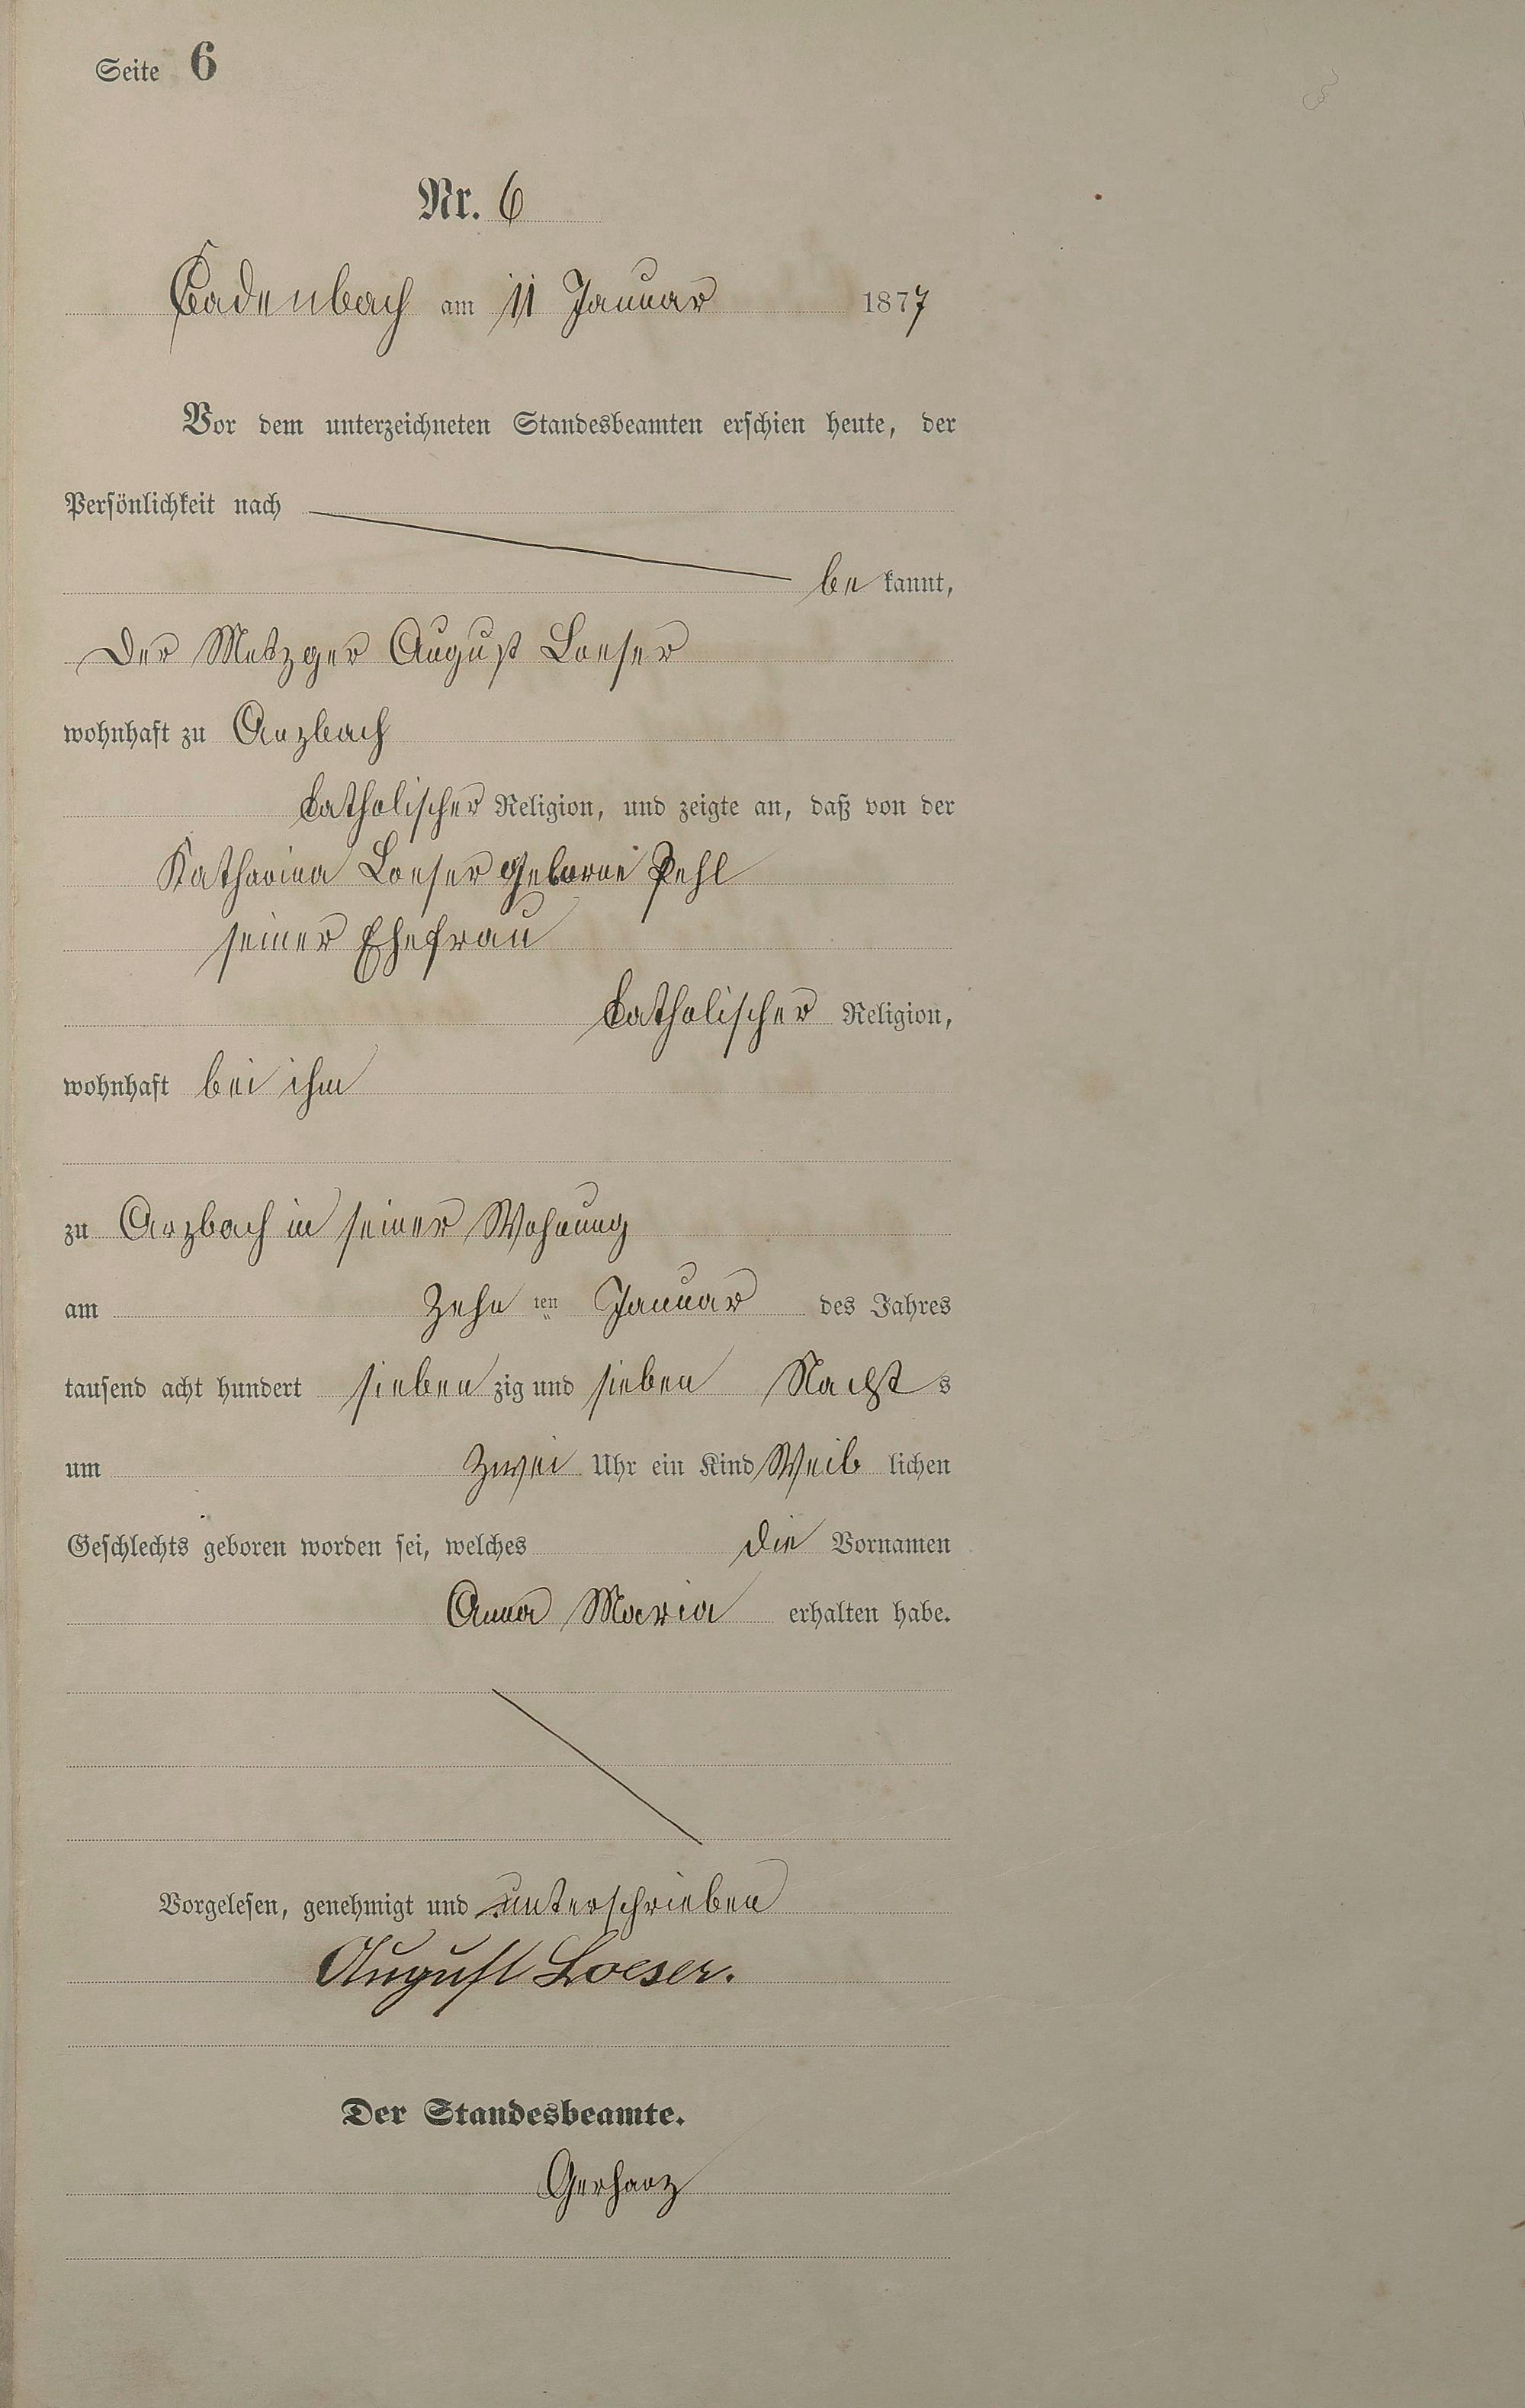 Seite 6
Nr. 6
Cadenbach am 11 Januar 1877
Vor dem unterzeichneten Standesbeamten erschien heute, der
Persönlichkeit nach
be kannt,
Der Metzger August Loeser
wohnhaft zu Arzbach
Catholischer Religion, und zeigte an, daß von der
Katharina Loeser geborne Pehl
seiner Ehefrau
Catholischer Religion,
wohnhaft bei ihm
zu Arzbach in seiner Wohnung
am Zehn ten Januar des Jahres
tausend acht hundert sieben zig und sieben Nacht s
um Zwei Uhr ein Kind Weib lichen
Geschlechts geboren worden sei, welches die Vornamen
Anna Maria erhalten habe.
Vorgelesen, genehmigt und unterschrieben
August Loeser.
Der Standesbeamte.
Gerharz